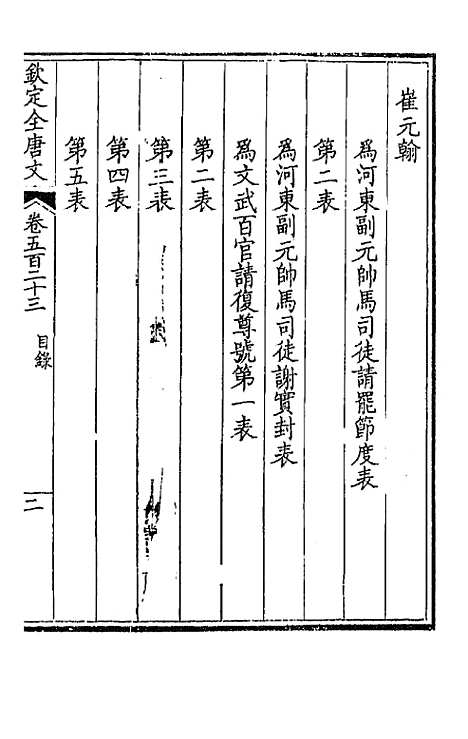 崔元翰
爲河東副元帥馬司徒請罷節度表
第二表
爲河東副元帥馬司徒謝實封表
爲文武百官請復尊號第一表
第二表
第三表
第四表
第五表
欽定全唐文
卷五百二十三
目錄
二